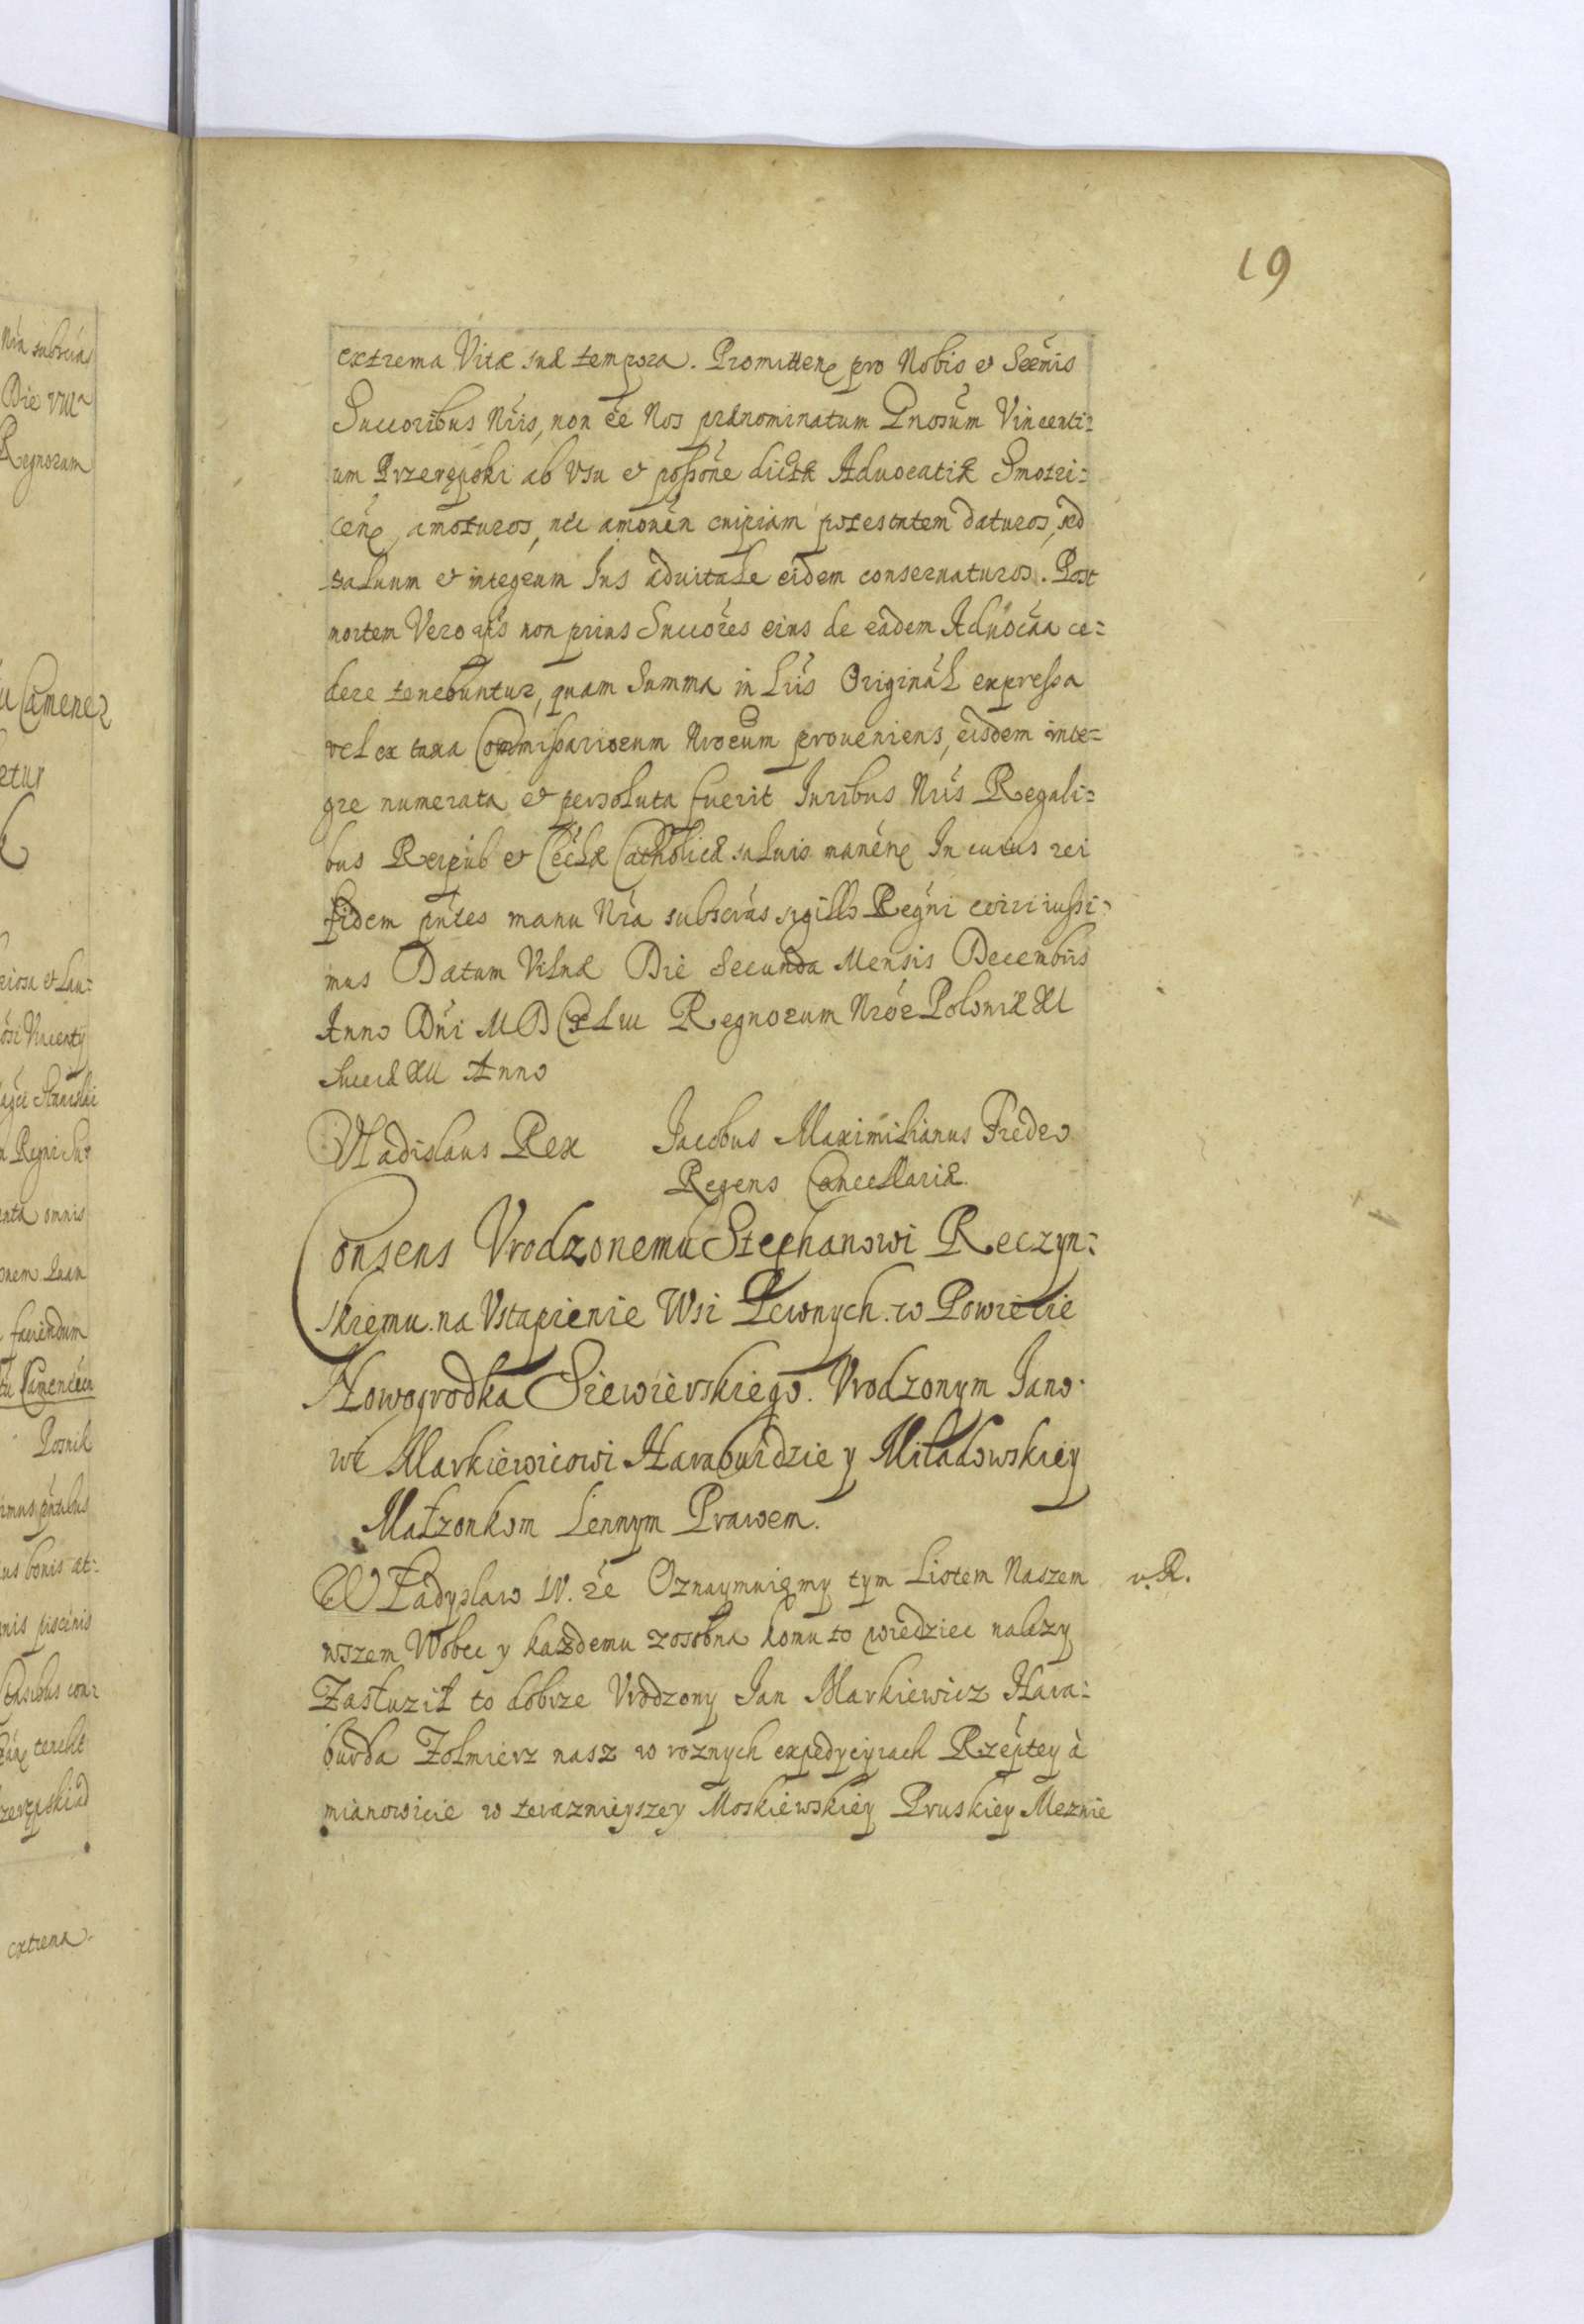 19
extrema Vitæ suæ tempora. Promitten pro Nobis et Serenis
Succoribus Nris, non ee Nos prænominatum Gnosum Vincenti=
um Przerępski ab Vsu et possone dictæ Advocatiæ Smotri=
cen amoturos, nec amouen cuipiam potestatem daturos, sed
saluum et integrum Ius aduitale eidem conseruaturos. Post
mortem Vero ipsis non prius Succores eius de eadem Aduocaa ce=
dere tenebuntur, quam Summa in Lris Original expressa
vel ex taxa Commissariorum Nrorum proueniens, eisdem inte=
gre numerata et persoluta fuerit Iuribus Nris Regali=
bus Reipub et Ecclæ Catholicæ saluis manen In cuius rei
fidem pntes manu Nra subscras sigillo Regni coirii iussi=
mus Datum Vilnæ Die Secunda Mensis Decembris
Anno Dni MDCxLiii Regnorum Nror Poloniæ XI
Sueciæ XII Anno
Vladislaus Rex Jacobus Maximilianus Fredro
Regens Cancellariæ
Consens Vrodzonemu Stephanowi Reczyn=
skiemu na Vstapienie Wsi Pewnych w Powiecie
Nowogrodka Siewierskiego. Vrodzonym Jano=
wi Markiewicowi Haraburdzie y Miladowskiey
Małzonkom Lennym Prawem.
Władyslaw IV. re Oznaymuięmy tym Listem Naszem v.R.
wszem Wobec y każdemu zosobna komu to wiedziec nalezy
Zasłuził to dobrze Vrodzony Jan Markiewicz Hara=
burda Zołnierz nasz w roznych expedycyach Rzeptey à
mianowicie w teraznieyszey Moskiewskiey Pruskiey Meznie
Nra subscras
Die VIIIa
Regnorum
Camenez
etur
Vincenty
Stanislai
omnis
faciendum
bonis at=
tenebit
extrema